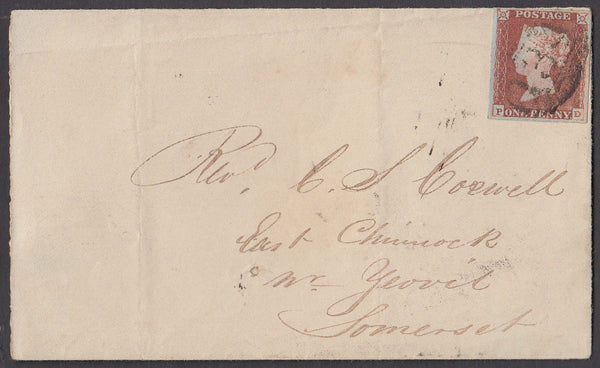 POSTAGE
P ONE PENNY D
Revd. C. S. Coxwell
East Chinnock
Nr. Yeovil
Somerset